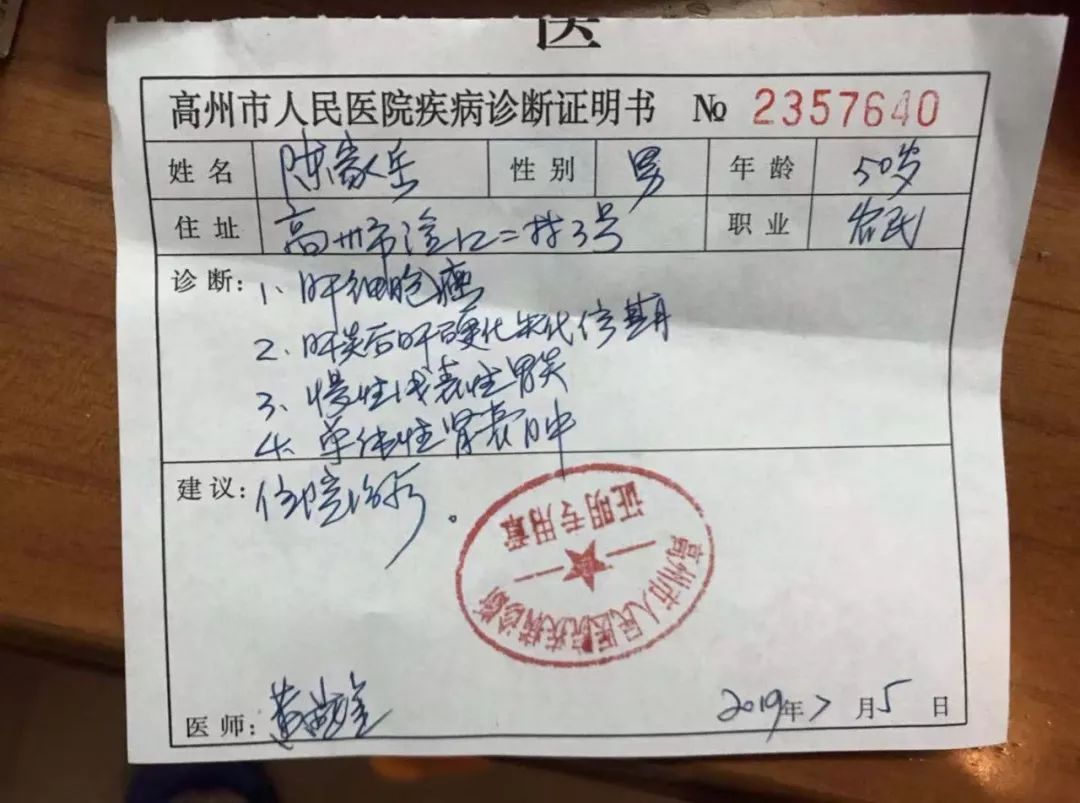 医
高州市人民医院疾病诊断证明书 № 2357640
姓名 陈家岳 性别 男 年龄 50岁
住址 高州市淦口二村3号 职业 农民
诊断: 1、肝细胞癌
2、肝炎后肝硬化失代偿期
3、慢性浅表性胃炎
4、单纯性肾囊肿
建议: 住院治疗。
证明专用章
高州市人民医院疾病诊断
医师: 黄
2019年7月5日